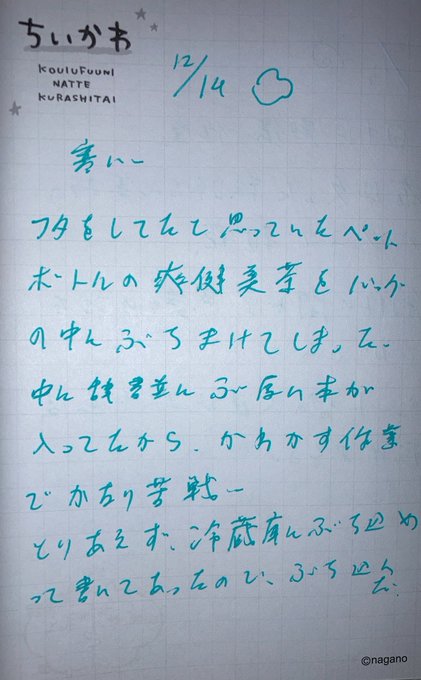 ちいかわ
KOUIUFUUNI
NATTE
KURASHITAI
12/14
寒いー
フタをしてたと思っていたペット
ボトルの爽健美茶をバッグ
の中にぶちまけてしまった。
中に辞書並にぶ厚い本が
入ってたから、かわかす作業
でかなり苦戦ー
とりあえず、冷蔵庫にぶち込め
って書いてあったので、ぶち込んだ。
©nagano